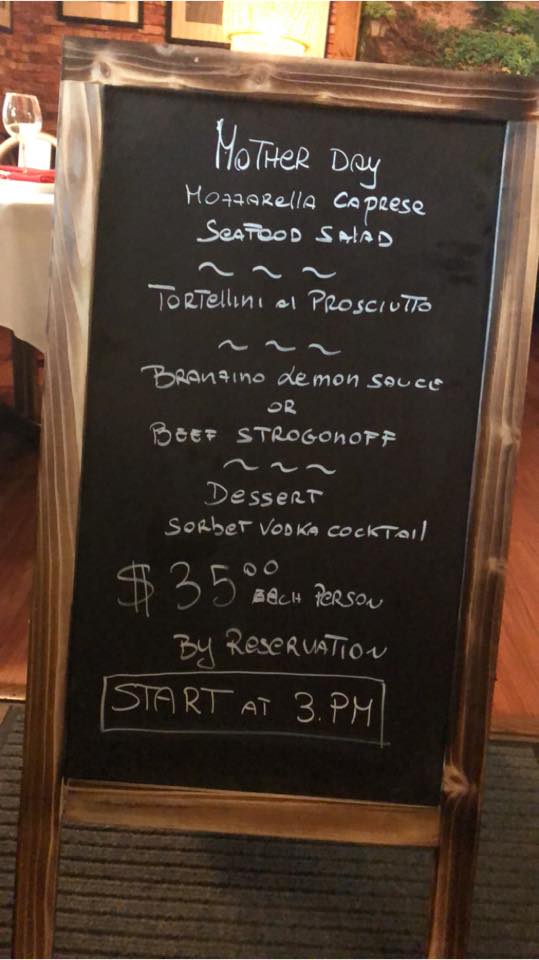 MOTHER DAY
MOZZARELLA CAPRESE
SEAFOOD SALAD
~ ~ ~
TORTELLINI al PROSCIUTTO
~ ~ ~
BRANZINO LEMON SAUCE
OR
BEEF STROGONOFF
~ ~ ~
DESSERT
SORBET VODKA COCKTAIL
$35.00 EACH PERSON
BY RESERVATION
START AT 3.PM